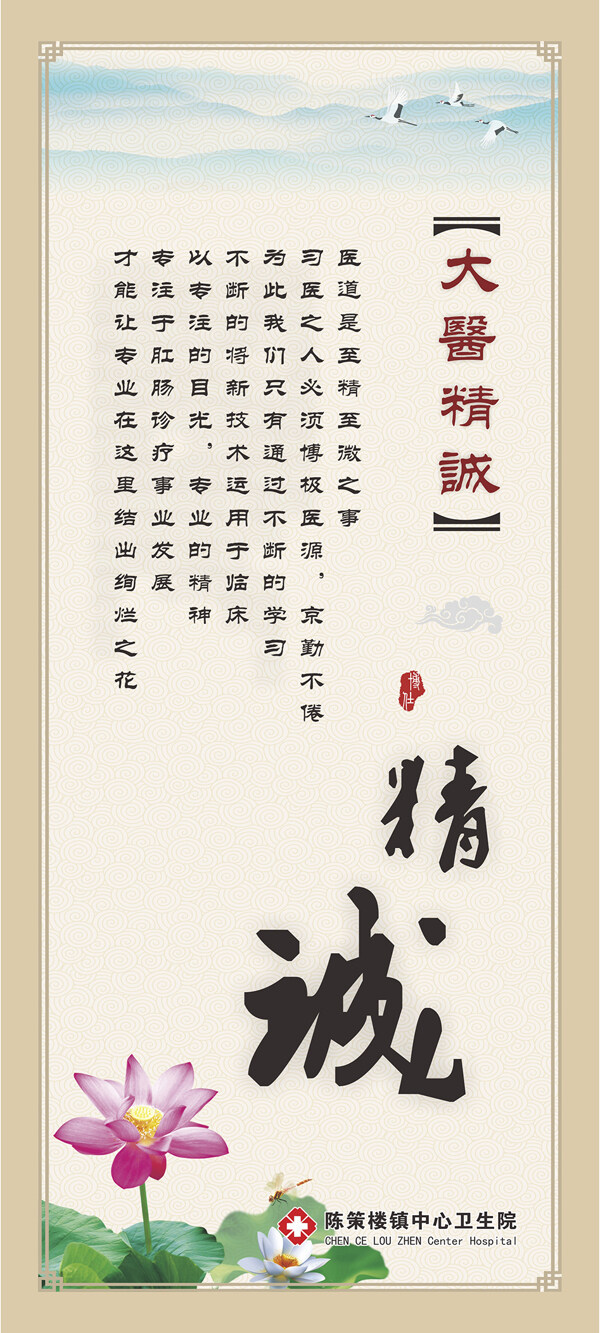 【大醫精誠】
医道是至精至微之事
习医之人必须博极医源，京勤不倦
为此我们只有通过不断的学习
不断的将新技术运用于临床
以专注的目光，专业的精神
专注于肛肠诊疗事业发展
才能让专业在这里结出绚烂之花
博仕
精
诚
陈策楼镇中心卫生院
CHEN CE LOU ZHEN Center Hospital